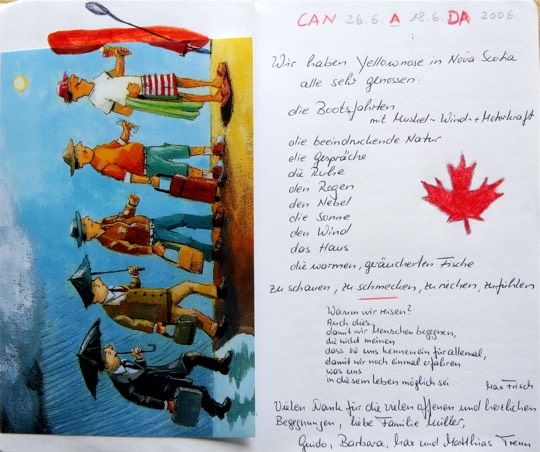 CAN 26.6. A 18.6. DA 2006
Wir haben Yellownose in Nova Scotia
alle sehr genossen:
die Bootsfahrten
mit Muskel- Wind- + Motorkraft
die beeindruckende Natur
die Gespräche
die Ruhe
den Regen
den Nebel
die Sonne
den Wind
das Haus
die warmen, geräucherten Fische
zu schauen, zu schmecken, zu riechen, zu fühlen
Warum wir reisen?
Auch dies,
damit wir Menschen begegnen,
die nicht meinen
dass sie uns kennen ein für allemal,
damit wir noch einmal erfahren
was uns
in diesem Leben möglich sei
Max Frisch
Vielen Dank für die vielen offenen und herzlichen
Begegnungen, liebe Familie Müller,
Guido, Barbara, Max und Matthias